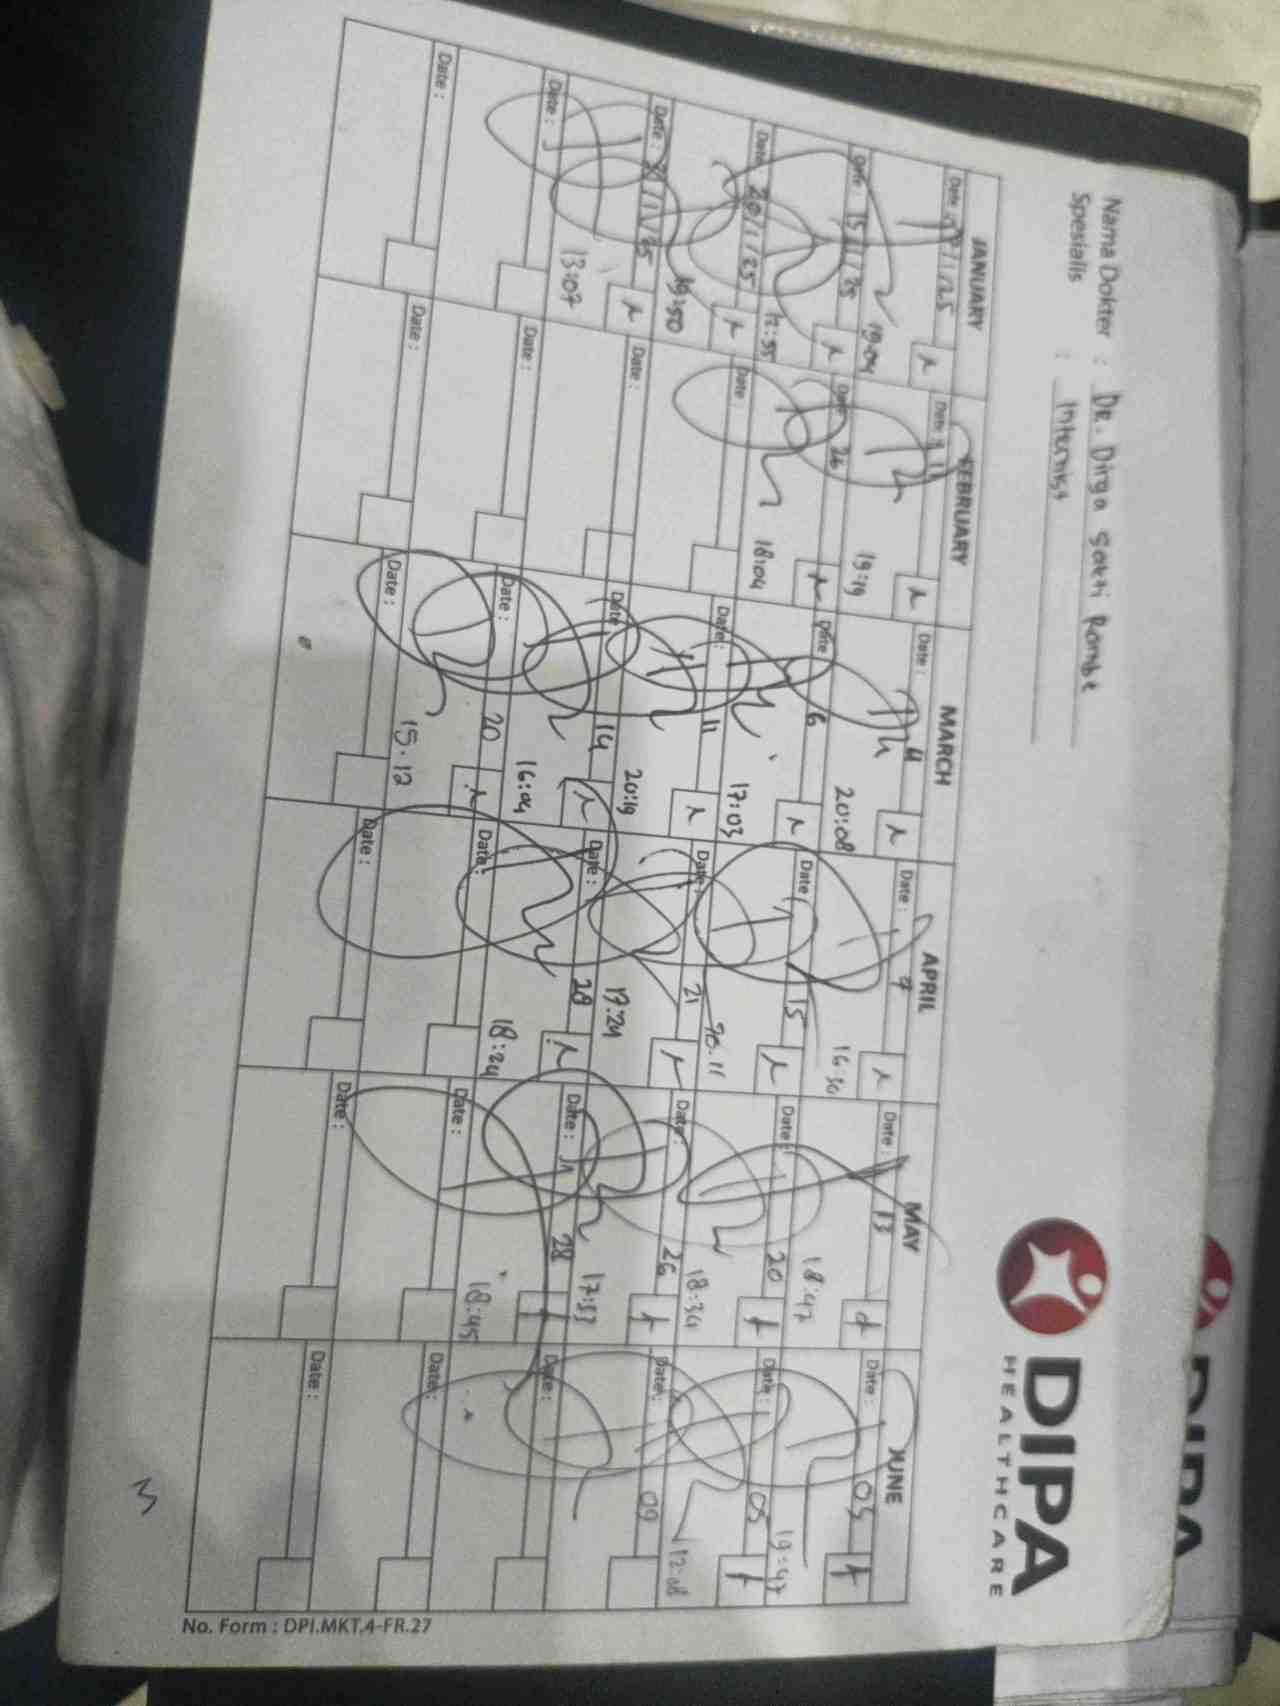 DIPA
HEALTHCARE
Nama Dokter : DR. Dirga Sakti Rambe
Spesialis : Internist
JANUARY FEBRUARY MARCH APRIL MAY JUNE
Date : /1/25 Date : 11 Date : 4 Date : 7 Date : 13 Date : 03
19:04 19:19 20:08 16:30 18:47 19:47
Date : 15/1/25 Date : 26 Date : 6 Date : 15 Date : 20 Date : 05
12:55 18:04 17:03 18:34 12:08
Date : 20/1/25 Date : Date : 11 Date : 21 Date : 26 Date : 09
19:50 20:19 17:24 17:53
Date : /1/25 Date : Date : 14 Date : 28 Date : 28 Date :
13:07 16:04 18:24 18:45
Date : Date : Date : 20 Date : Date : Date :
15.12
Date : Date : Date : Date : Date : Date :
No. Form : DPI.MKT.4-FR.27